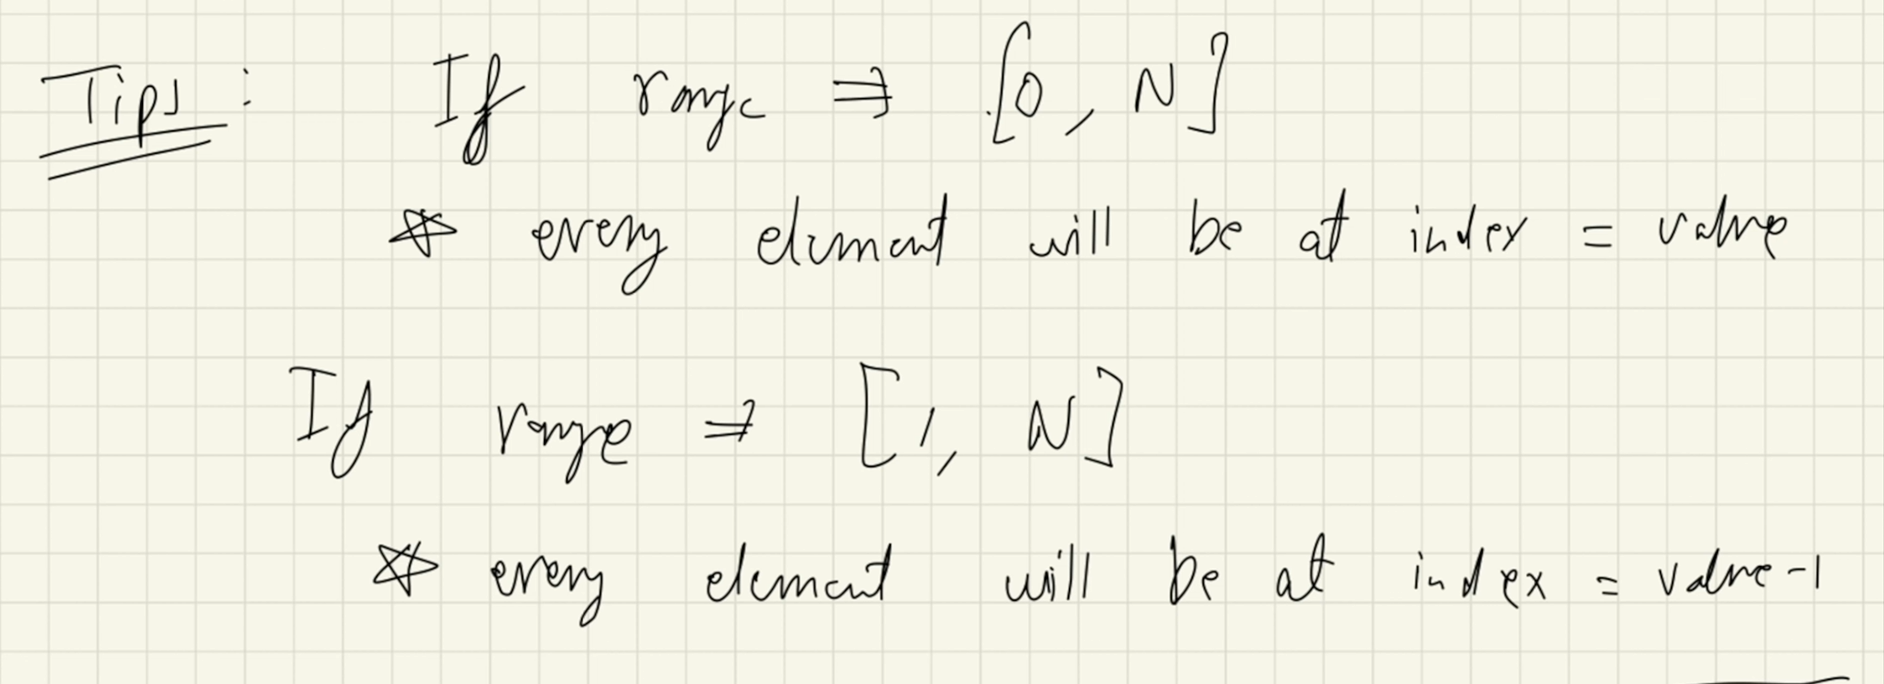 Tips : If range ⇒ [0, N]
☆ every element will be at index = value
If range ⇒ [1, N]
☆ every element will be at index = value-1